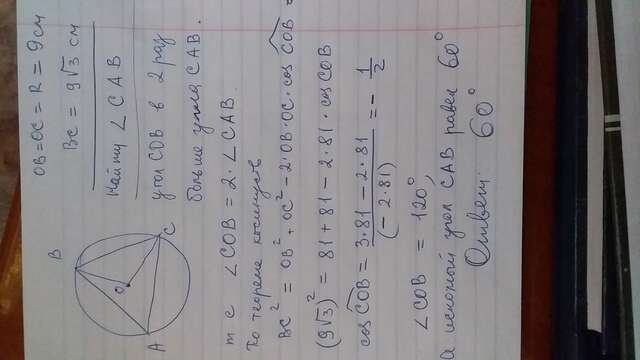 B
O
A
C
OB = OC = R = 9 см
BC = 9√3 см
Найти ∠CAB
угол COB в 2 раз
больше угла CAB.
т е ∠COB = 2·∠CAB.
По теореме косинусов
BC² = OB² + OC² − 2·OB·OC·cos COB =
(9√3)² = 81 + 81 − 2·81·cos COB
cos COB = (3·81 − 2·81) / (−2·81) = −1/2
∠COB = 120°,
а искомый угол CAB равен 60°
Ответ: 60°